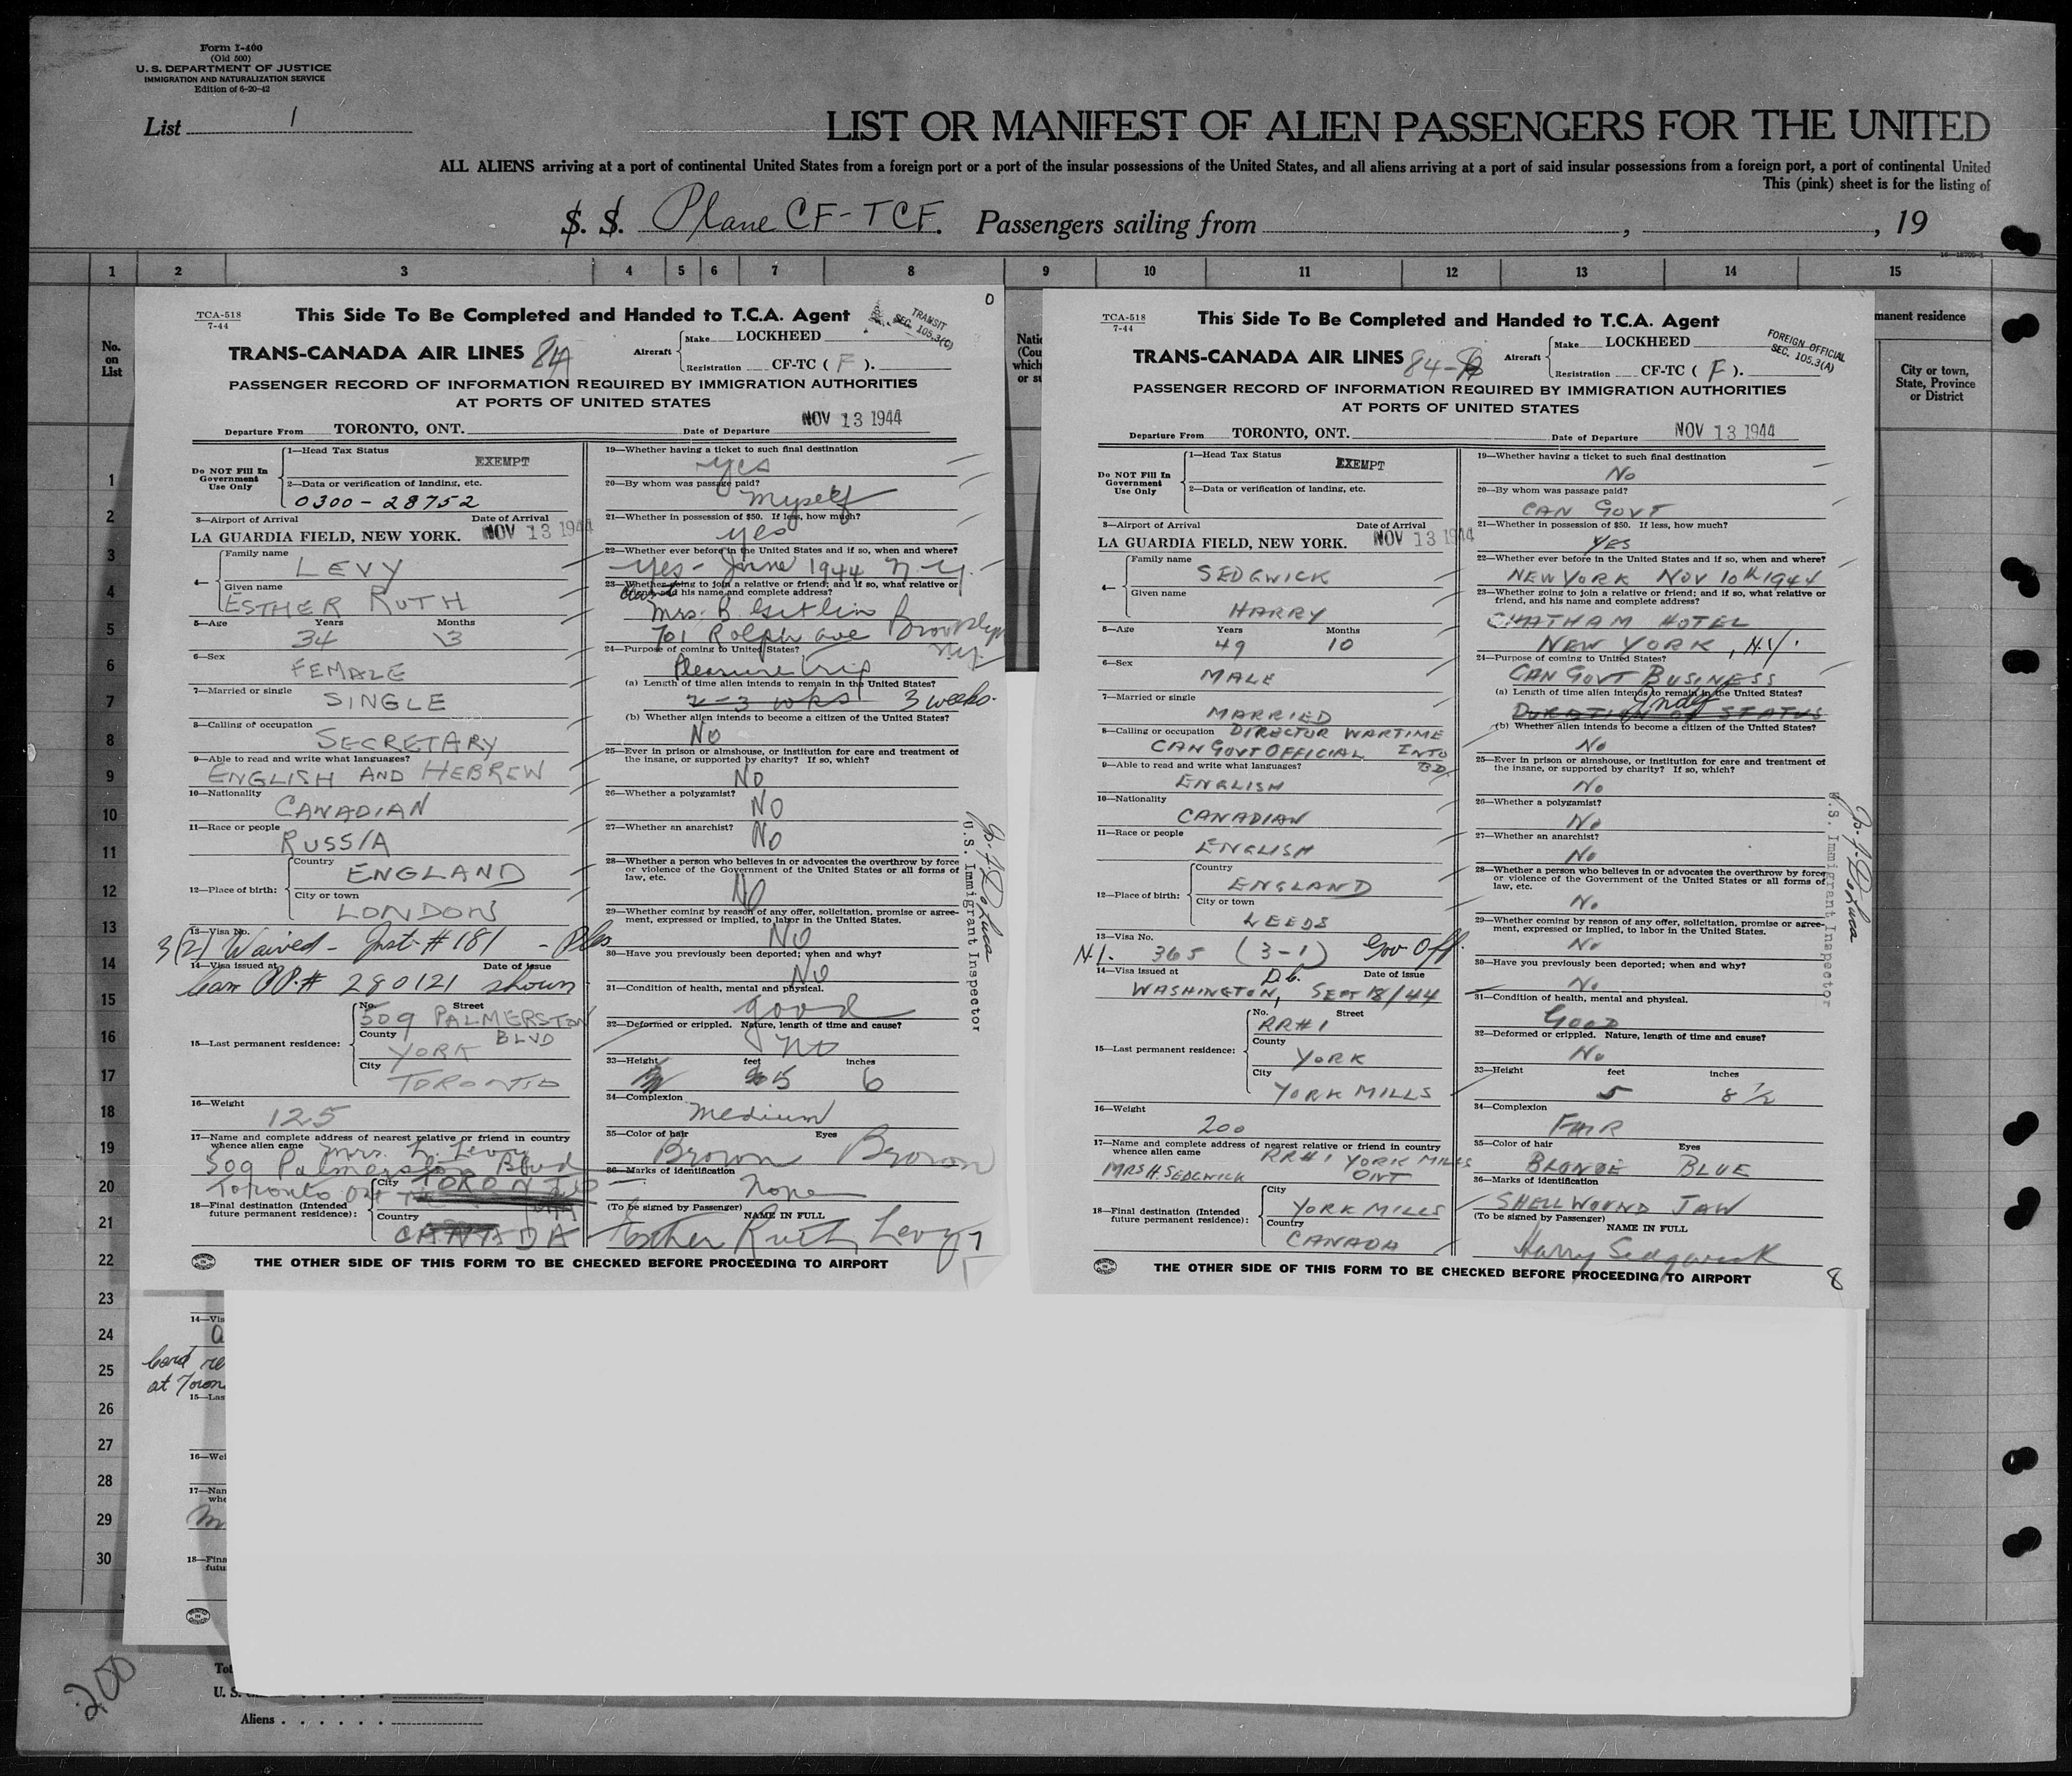 Form I-400
(Old 500)
U. S. DEPARTMENT OF JUSTICE
IMMIGRATION AND NATURALIZATION SERVICE
Edition of 6-20-42
List 1
LIST OR MANIFEST OF ALIEN PASSENGERS FOR THE UNITED
ALL ALIENS arriving at a port of continental United States from a foreign port or a port of the insular possessions of the United States, and all aliens arriving at a port of said insular possessions from a foreign port, a port of continental United
This (pink) sheet is for the listing of
S. S. Plane CF-TCF. Passengers sailing from , , 19
1 2 3 4 5 6 7 8 9 10 11 12 13 14 15
No. on List
manent residence
City or town, State, Province or District
1
2
3
4
5
6
7
8
9
10
11
12
13
14
15
16
17
18
19
20
21
22
23
24
25
26
27
28
29
30
0
TCA-518
7-44
This Side To Be Completed and Handed to T.C.A. Agent
TRANSIT
SEC. 105.3(C)
TRANS-CANADA AIR LINES 84A
Aircraft Make LOCKHEED
Registration CF-TC ( F ).
PASSENGER RECORD OF INFORMATION REQUIRED BY IMMIGRATION AUTHORITIES
AT PORTS OF UNITED STATES
Departure From TORONTO, ONT. Date of Departure NOV 13 1944
Do NOT Fill In Government Use Only
1—Head Tax Status EXEMPT
2—Data or verification of landing, etc.
0300-28752
3—Airport of Arrival Date of Arrival
LA GUARDIA FIELD, NEW YORK. NOV 13 1944
4— Family name
LEVY
Given name
ESTHER RUTH
5—Age Years Months
34 3
6—Sex
FEMALE
7—Married or single
SINGLE
8—Calling of occupation
SECRETARY
9—Able to read and write what languages?
ENGLISH AND HEBREW
10—Nationality
CANADIAN
11—Race or people
RUSSIA
12—Place of birth: Country
ENGLAND
City or town
LONDON
13—Visa No.
3(2) Waived - Inst. #181 - Pls
14—Visa issued at Date of issue
Can PP# 280121 shown
15—Last permanent residence: No. Street
509 PALMERSTON
BLVD
County
YORK
City
TORONTO
16—Weight
125
17—Name and complete address of nearest relative or friend in country whence alien came
Mrs. L. Levy
509 Palmerston Blvd
Toronto Ont
18—Final destination (Intended future permanent residence): City
TORONTO
Country
CANADA
19—Whether having a ticket to such final destination
yes
20—By whom was passage paid?
myself
21—Whether in possession of $50. If less, how much?
yes
22—Whether ever before in the United States and if so, when and where?
Yes - June 1944 N.Y.
23—Whether going to join a relative or friend; and if so, what relative or friend and his name and complete address?
Mrs. B. Gitlin
701 Ralph ave Brooklyn
N.Y.
24—Purpose of coming to United States?
Pleasure trip
(a) Length of time alien intends to remain in the United States?
2-3 wks 3 weeks.
(b) Whether alien intends to become a citizen of the United States?
No
25—Ever in prison or almshouse, or institution for care and treatment of the insane, or supported by charity? If so, which?
No
26—Whether a polygamist?
No
27—Whether an anarchist?
No
28—Whether a person who believes in or advocates the overthrow by force or violence of the Government of the United States or all forms of law, etc.
No
29—Whether coming by reason of any offer, solicitation, promise or agreement, expressed or implied, to labor in the United States.
No
30—Have you previously been deported; when and why?
No
31—Condition of health, mental and physical.
good
32—Deformed or crippled. Nature, length of time and cause?
no
33—Height feet inches
5 6
34—Complexion
medium
35—Color of hair Eyes
Brown Brown
36—Marks of identification
none
(To be signed by Passenger) NAME IN FULL
Esther Ruth Levy
7
U.S. Immigrant Inspector
THE OTHER SIDE OF THIS FORM TO BE CHECKED BEFORE PROCEEDING TO AIRPORT
TCA-518
7-44
This Side To Be Completed and Handed to T.C.A. Agent
FOREIGN OFFICIAL
SEC. 105.3(A)
TRANS-CANADA AIR LINES 84-
Aircraft Make LOCKHEED
Registration CF-TC ( F ).
PASSENGER RECORD OF INFORMATION REQUIRED BY IMMIGRATION AUTHORITIES
AT PORTS OF UNITED STATES
Departure From TORONTO, ONT. Date of Departure NOV 13 1944
Do NOT Fill In Government Use Only
1—Head Tax Status EXEMPT
2—Data or verification of landing, etc.
3—Airport of Arrival Date of Arrival
LA GUARDIA FIELD, NEW YORK. NOV 13 1944
4— Family name
SEDGWICK
Given name
HARRY
5—Age Years Months
49 10
6—Sex
MALE
7—Married or single
MARRIED
8—Calling or occupation DIRECTOR WARTIME
CAN GOVT OFFICIAL INFO
BD.
9—Able to read and write what languages?
ENGLISH
10—Nationality
CANADIAN
11—Race or people
ENGLISH
12—Place of birth: Country
ENGLAND
City or town
LEEDS
13—Visa No.
N.I. 365 (3-1) Gov Off.
14—Visa issued at Date of issue
WASHINGTON, D.C. SEPT 18/44
15—Last permanent residence: No. Street
RR#1
County
YORK
City
YORK MILLS
16—Weight
200
17—Name and complete address of nearest relative or friend in country whence alien came
RR#1 YORK MILLS
MRS H. SEDGWICK ONT
18—Final destination (Intended future permanent residence): City
YORK MILLS
Country
CANADA
19—Whether having a ticket to such final destination
No
20—By whom was passage paid?
CAN GOVT
21—Whether in possession of $50. If less, how much?
YES
22—Whether ever before in the United States and if so, when and where?
NEW YORK NOV 10th 1944
23—Whether going to join a relative or friend; and if so, what relative or friend, and his name and complete address?
CHATHAM HOTEL
NEW YORK, N.Y.
24—Purpose of coming to United States?
CAN GOVT BUSINESS
(a) Length of time alien intends to remain in the United States?
Indef
DURATION OF STATUS
(b) Whether alien intends to become a citizen of the United States?
No
25—Ever in prison or almshouse, or institution for care and treatment of the insane, or supported by charity? If so, which?
No
26—Whether a polygamist?
No
27—Whether an anarchist?
No
28—Whether a person who believes in or advocates the overthrow by force or violence of the Government of the United States or all forms of law, etc.
No
29—Whether coming by reason of any offer, solicitation, promise or agreement, expressed or implied, to labor in the United States.
No
30—Have you previously been deported; when and why?
No
31—Condition of health, mental and physical.
GOOD
32—Deformed or crippled. Nature, length of time and cause?
No
33—Height feet inches
5 8 1/2
34—Complexion
FAIR
35—Color of hair Eyes
BLONDE BLUE
36—Marks of identification
SHELL WOUND JAW
(To be signed by Passenger) NAME IN FULL
Harry Sedgwick
8
U.S. Immigrant Inspector
THE OTHER SIDE OF THIS FORM TO BE CHECKED BEFORE PROCEEDING TO AIRPORT
200
Aliens